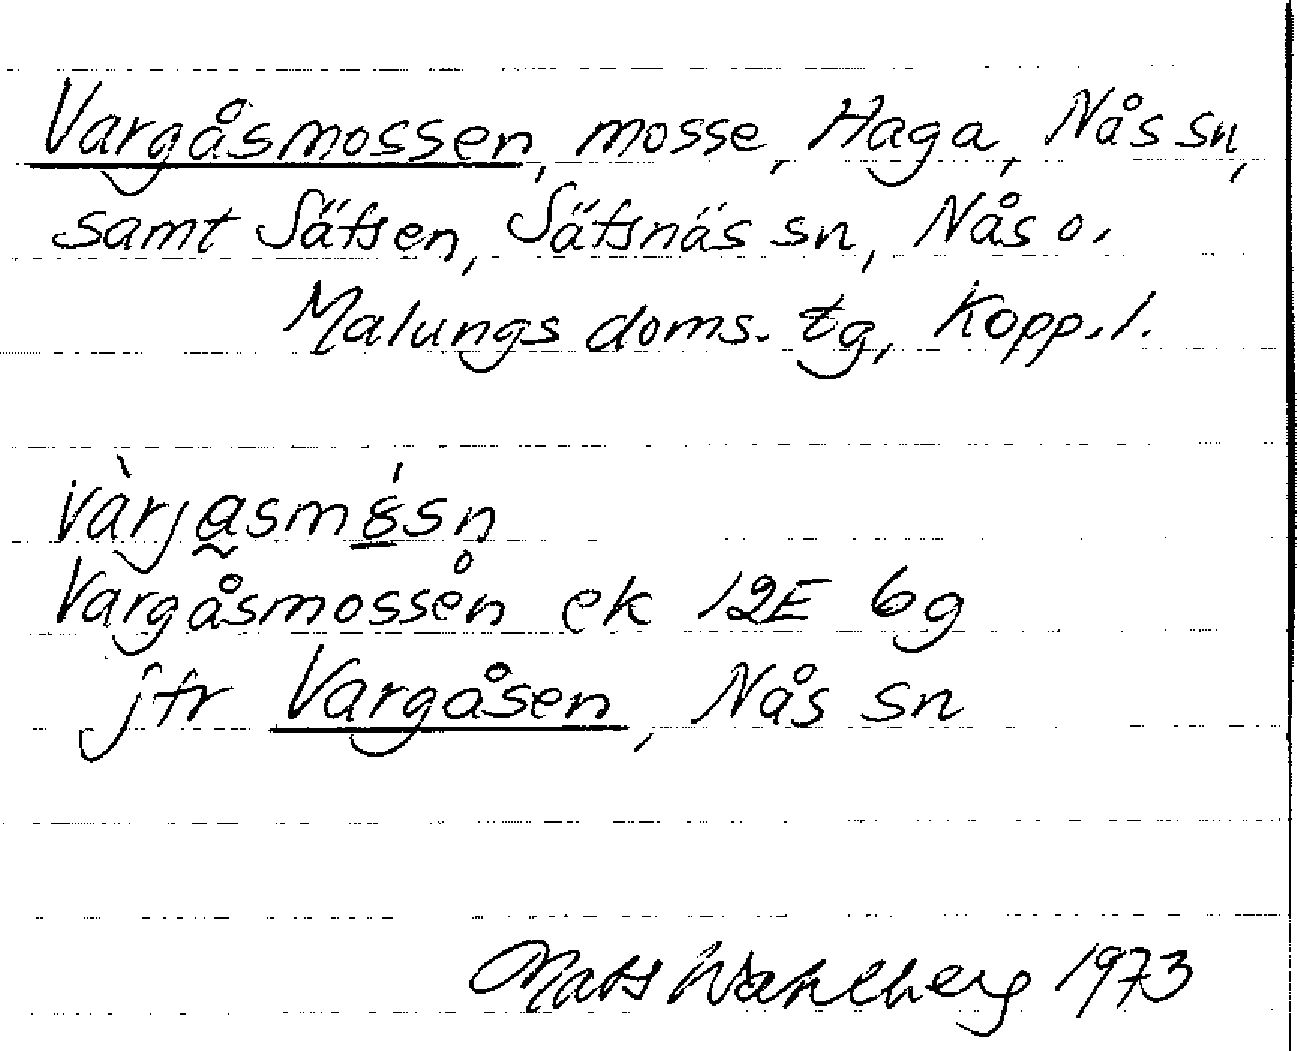 Vargåsmossen, mosse, Haga, Nås sn,
samt Säfsen, Säfsnäs sn, Nås o.
Malungs doms. tg, Kopp. l.
Vargåsmossen ek 12E 6g
jfr Vargåsen, Nås sn
Mats Wahlberg 1973